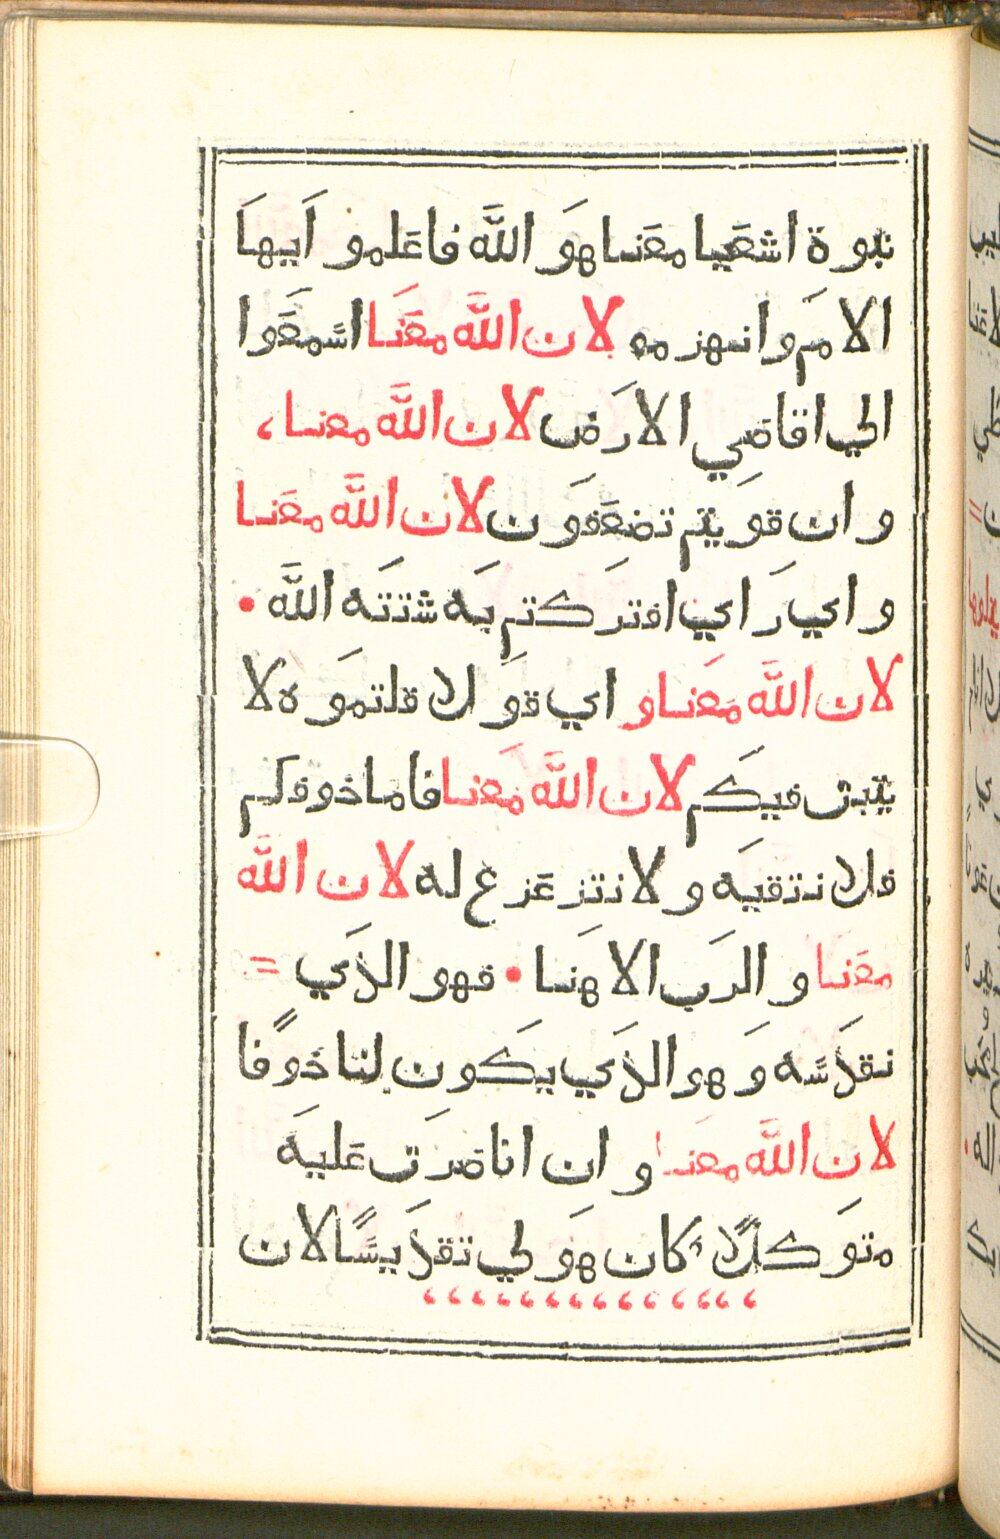 نبوة اشعَيا معَنا هوَ اللَّه فاعَلمو اَيهاَ
الامَم وانهزمو لان اللَّه معَنَا اسَمعَوا
الي اقاصَي الارَض لان اللَّه معنا،
وان قوَيتم تضعَفوَن لان اللَّه معَنا
واي رَاي افترَكتم بهَ شتتهَ اللَّه •
لان اللَّه معَنا واي قوَلا قلتموَه لا
يتبث فيكَم لان اللَّه معَنا فاما خوفكم
فلا نتقيهَ ولا نتزعَزع له لان اللَّه
معَنا والرَب الاهَنا • فهو الذَي =
نقدَسَه وَهو الذَي يكَون لنا خوفًا
لان اللَّه معَنا وان انا صَرَت عَليهَ
متوَكلًا كان هوَ لي تقدَيسًا لان